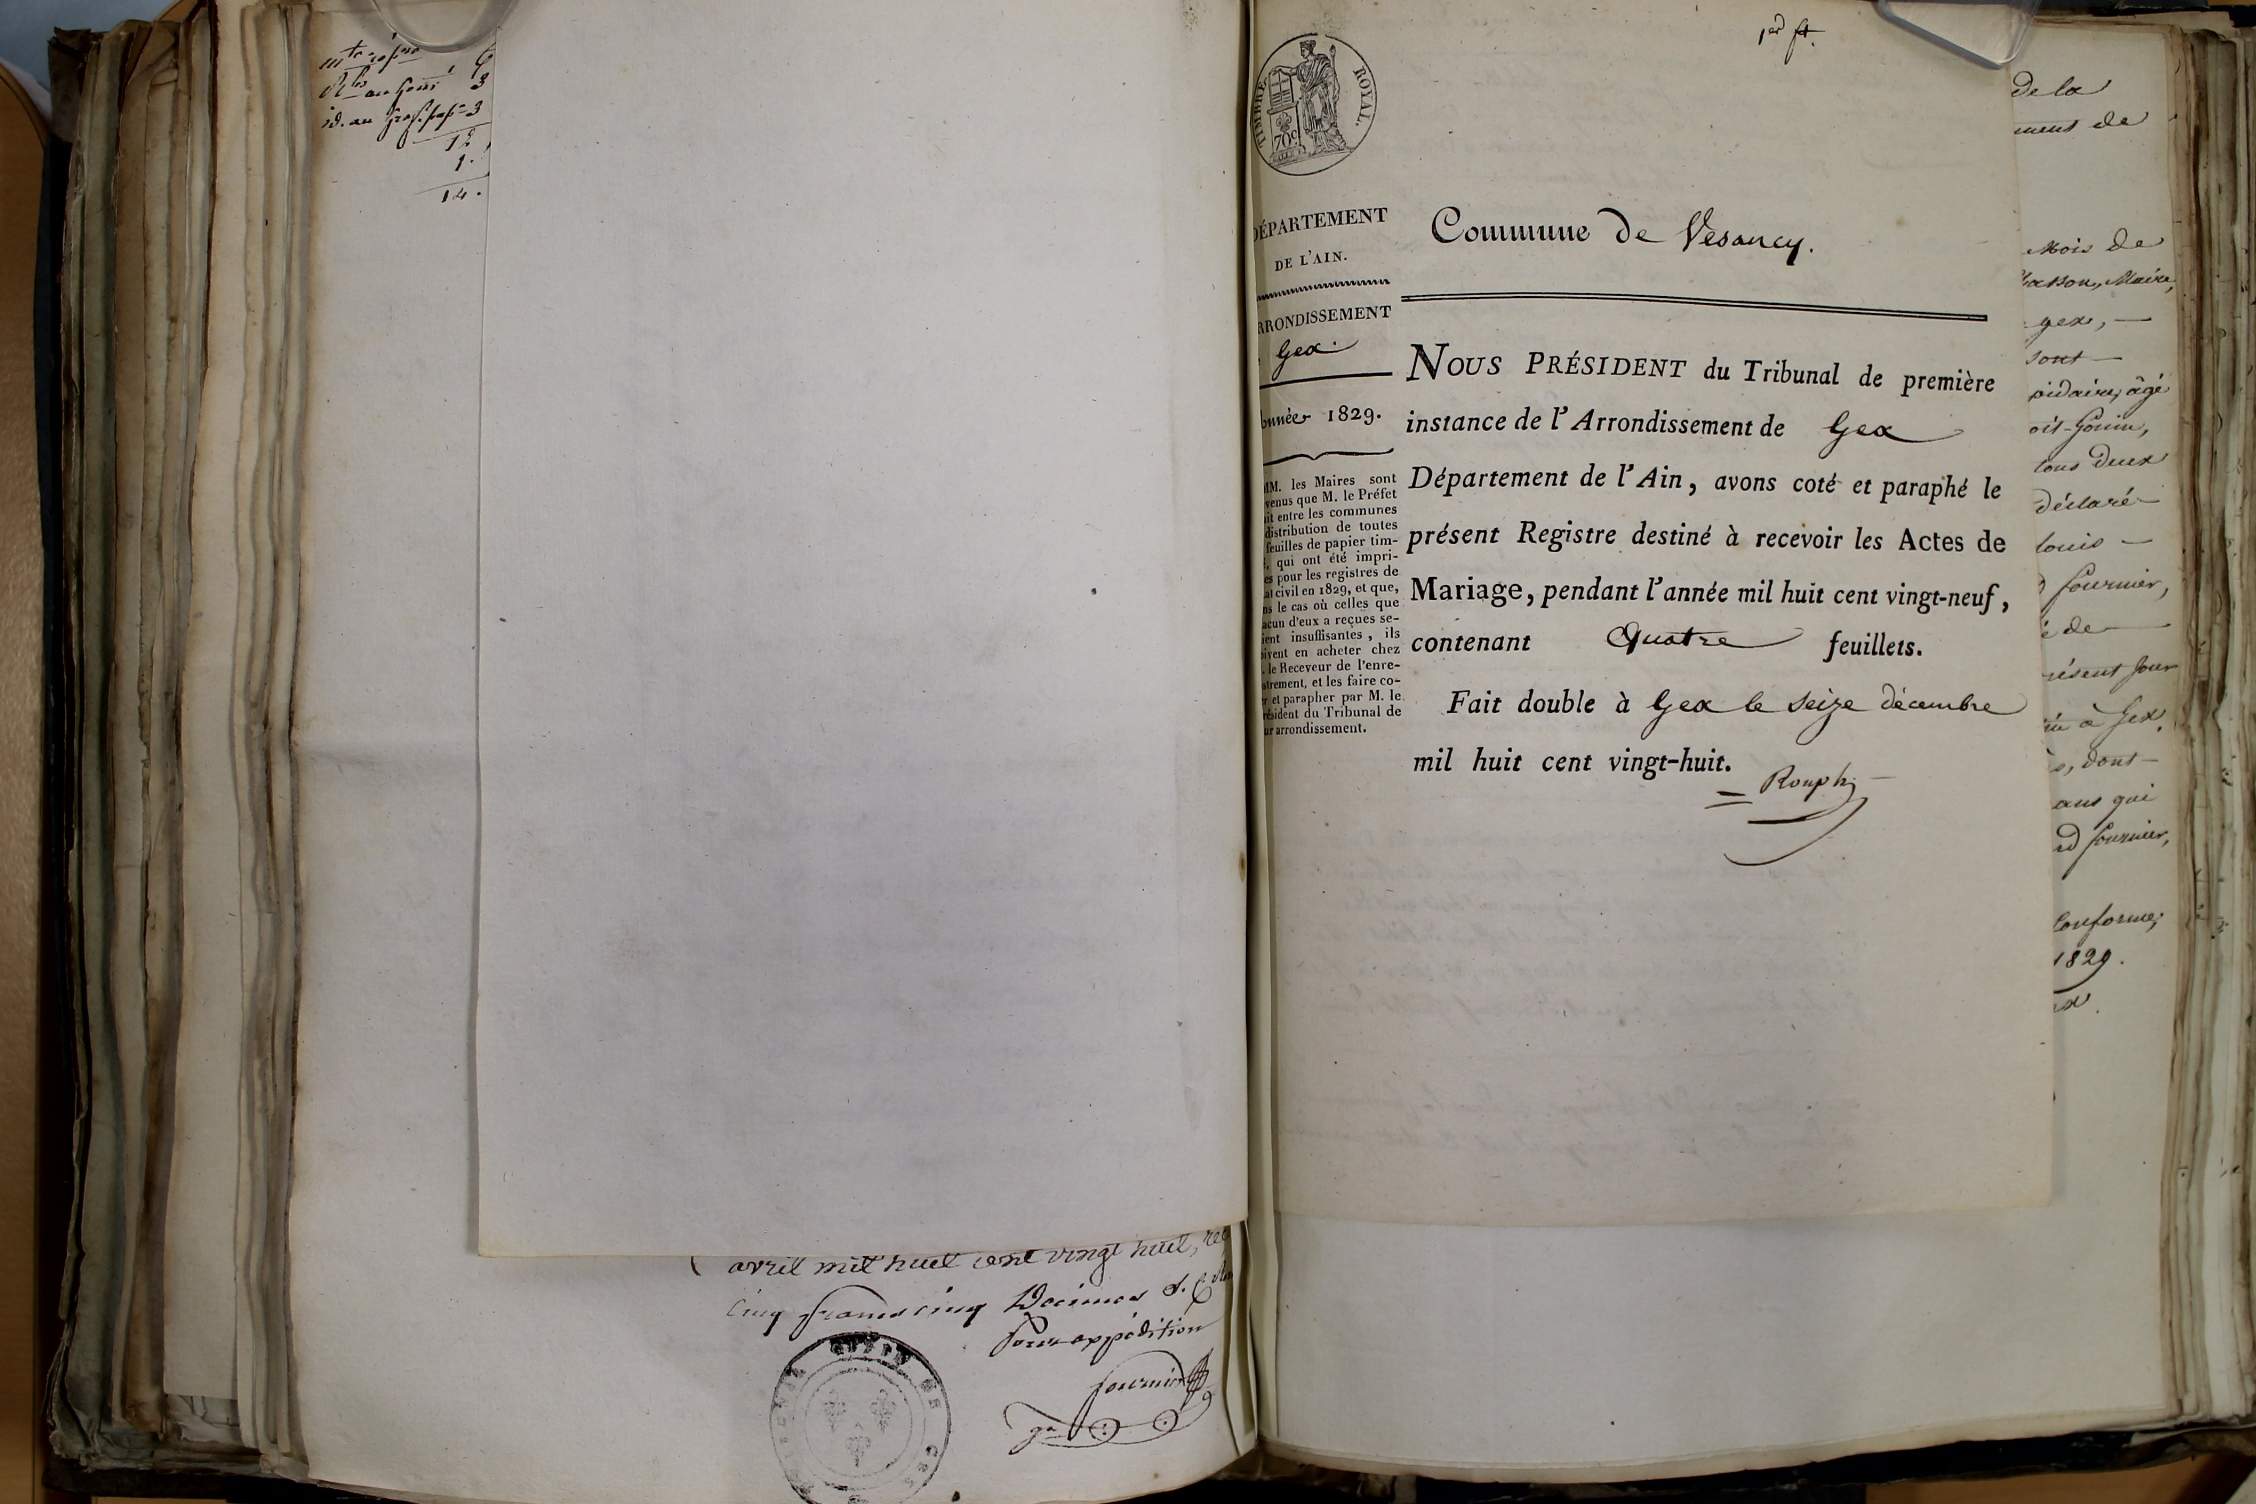 9
3
id. au
3
12
1.
14.
avril mil huit cent vingt huit,
Cinq francs cinq Décimes
Pour expédition
fournier
1er ft.
TIMBRE ROYAL.
70c
DÉPARTEMENT
DE L'AIN.
ARRONDISSEMENT
Gex.
Année 1829.
MM. les Maires sont
venus que M. le Préfet
ait entre les communes
distribution de toutes
feuilles de papier tim-
, qui ont été impri-
es pour les registres de
at civil en 1829, et que,
ns le cas où celles que
acun d'eux a reçues se-
ient insuffisantes, ils
oivent en acheter chez
. le Receveur de l'enre-
strement, et les faire co-
r et parapher par M. le
résident du Tribunal de
ur arrondissement.
Commune de Vesancy.
NOUS PRÉSIDENT du Tribunal de première
instance de l'Arrondissement de Gex
Département de l'Ain, avons coté et paraphé le
présent Registre destiné à recevoir les Actes de
Mariage, pendant l'année mil huit cent vingt-neuf,
contenant Quatre feuillets.
Fait double à Gex le seize décembre
mil huit cent vingt-huit.
Rouph
de la
ment de
Mois de
Maire,
gex, —
sont —
âgé
Gouin,
tous deux
déclaré —
louis —
fournier,
é de —
résent jour
à Gex,
, dont —
ans qui
rd fournier,
Conforme;
1829.
ex.